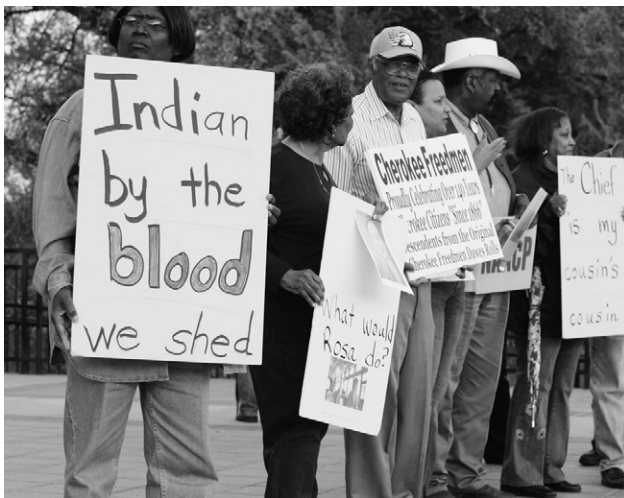 Indian
by the
blood
we shed
What would
Rosa do?
Cherokee Freedmen
Proudly Celebrating Over 140 Years
Cherokee Citizens Since 1866
Descendents from the Original
Cherokee Freedmen Dawes Rolls
NAACP
The Chief
is my
cousin's
cousin